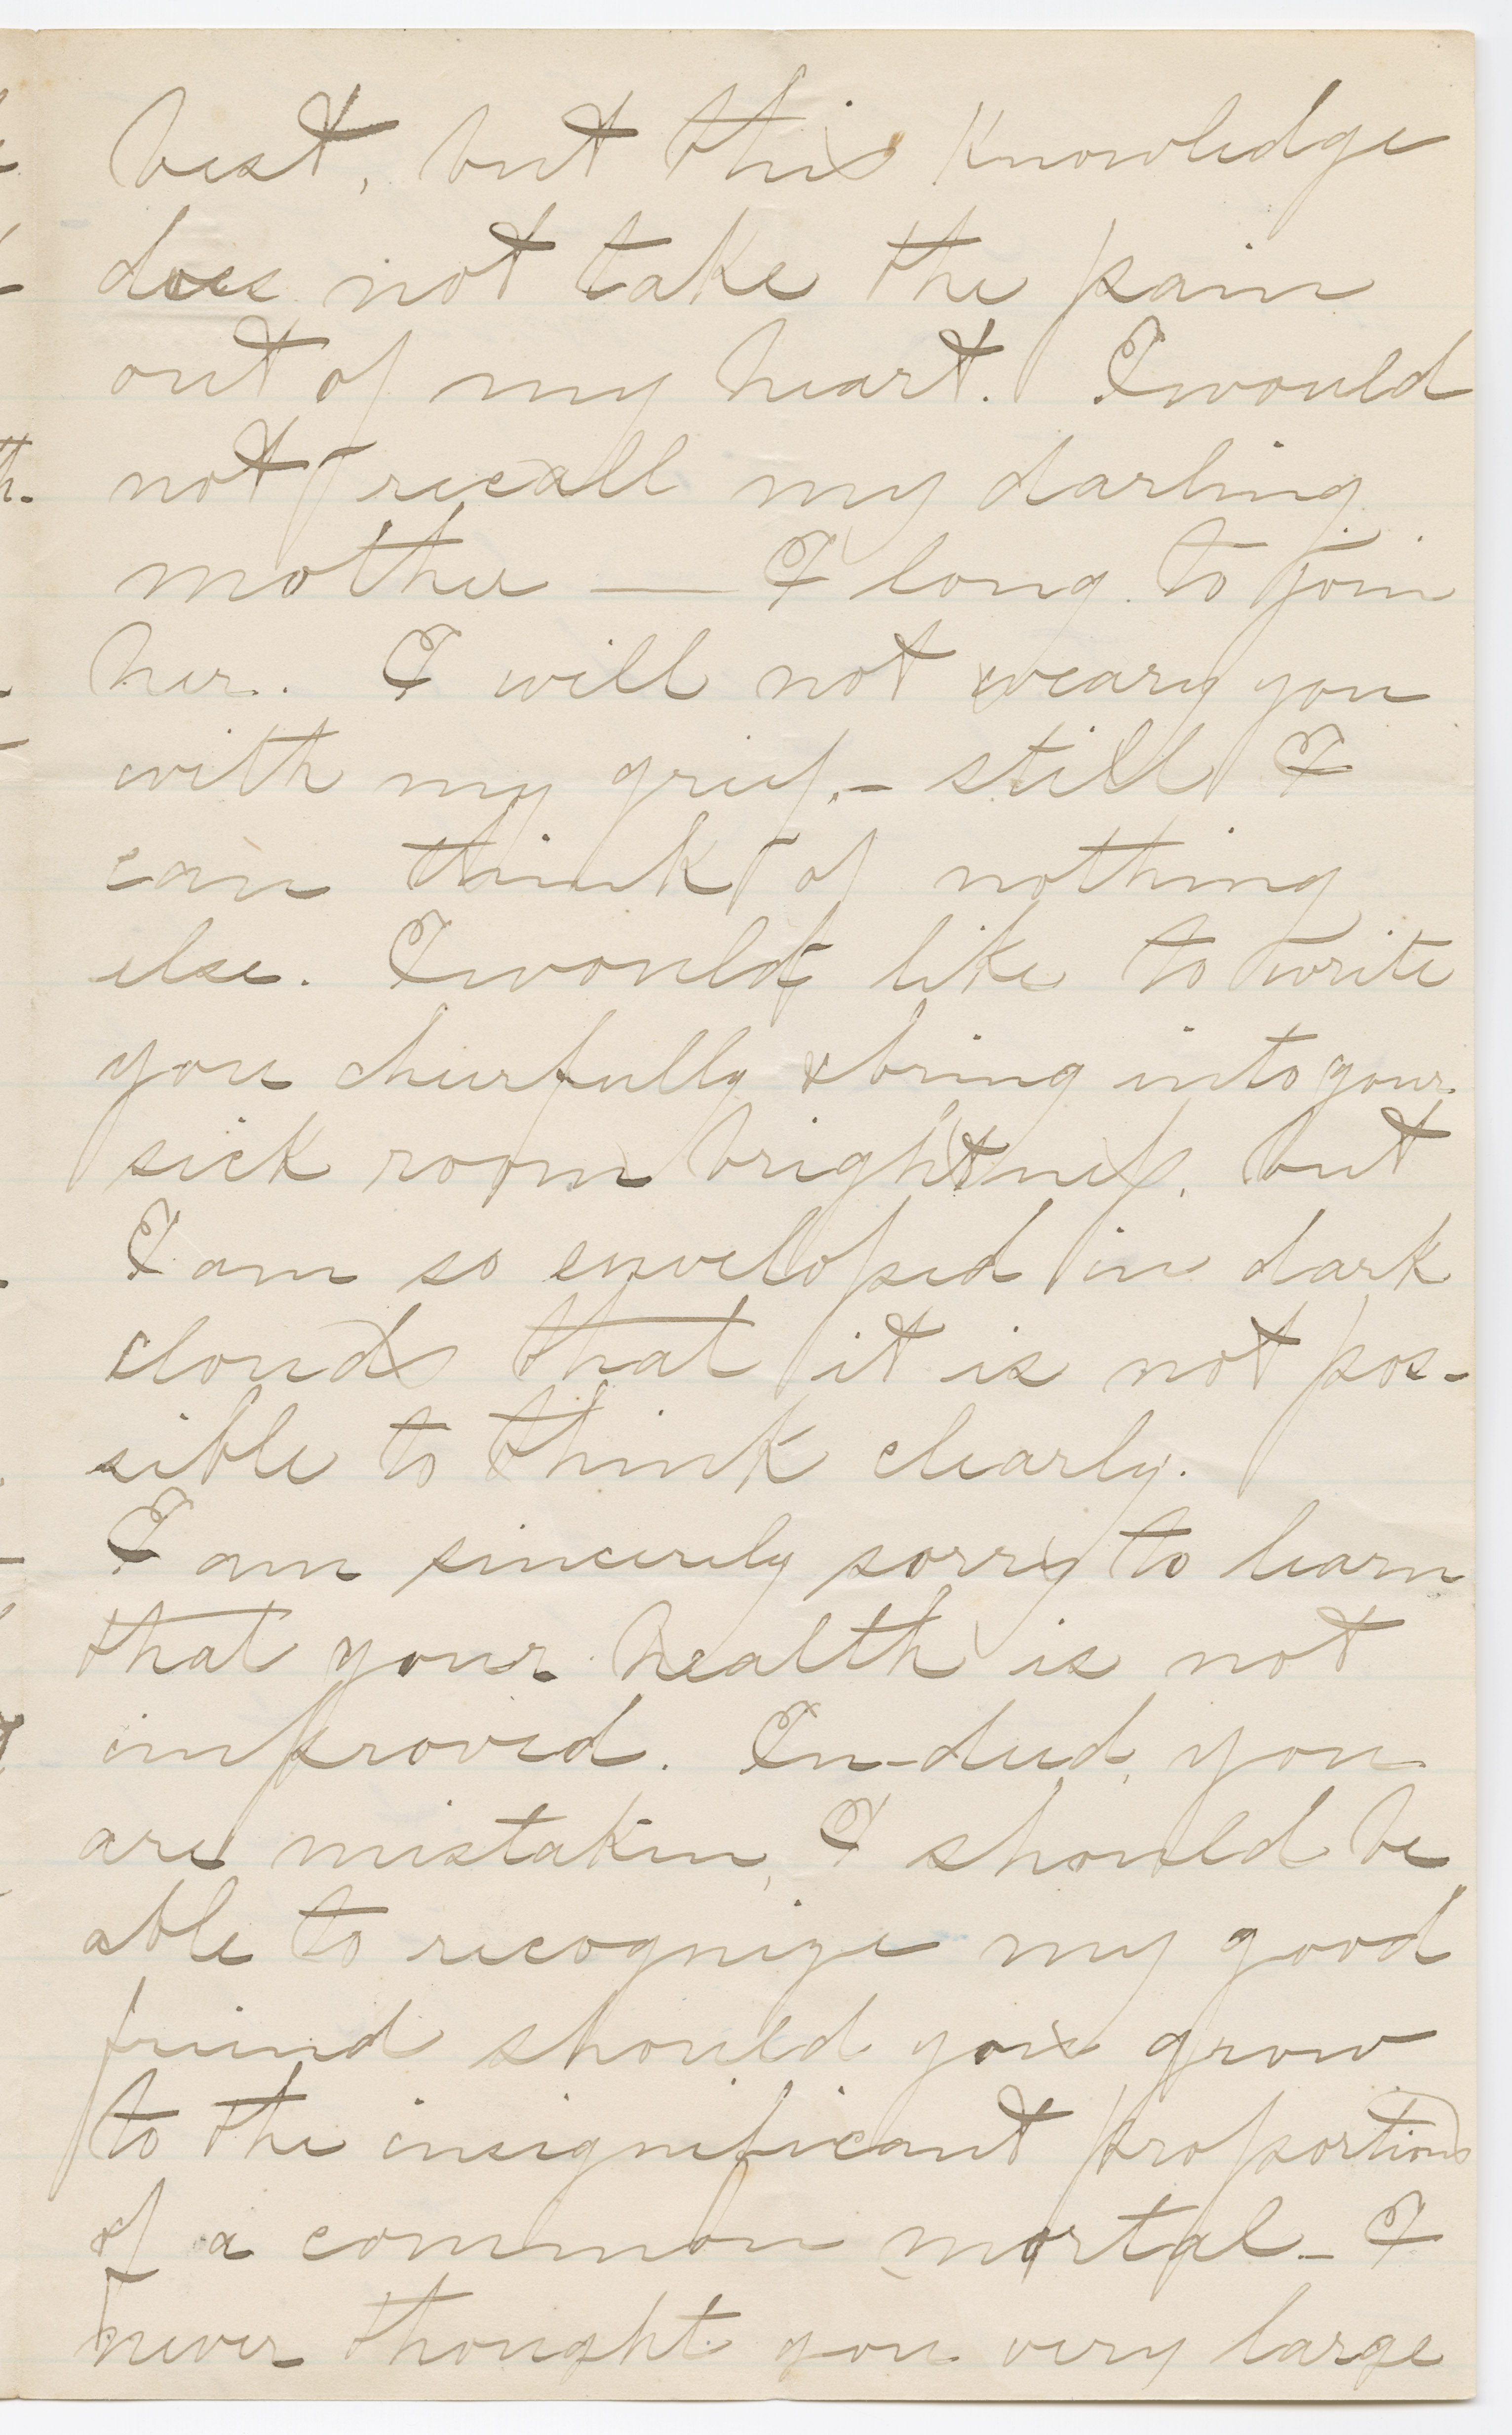 best, but this knowledge
does not take the pain
out of my heart. I would
not recall my darling
mother — I long to join
her. I will not weary you
with my grief, – still I
can think of nothing
else. I would like to write
you cheerfully & bring into your
sick room brightness, but
I am so enveloped in dark
clouds that it is not pos-
sible to think clearly.
I am sincerely sorry to learn
that your health is not
improved. In-deed, you
are mistaken, I should be
able to recognize my good
friend should you grow
to the insignificant proportions
of a common mortal – I
never thought you very large